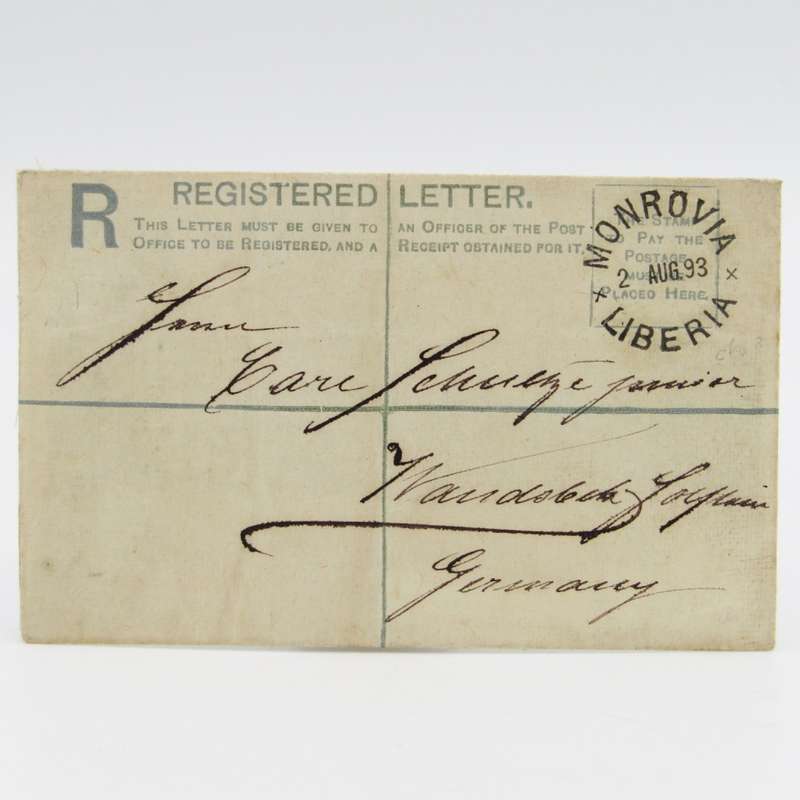 R REGISTERED LETTER.
THIS LETTER MUST BE GIVEN TO AN OFFICER OF THE POST
OFFICE TO BE REGISTERED, AND A RECEIPT OBTAINED FOR IT.
STAMP
TO PAY THE
POSTAGE
MUST BE
PLACED HERE.
MONROVIA
2 AUG 93
LIBERIA
Herrn
Carl Schultze junior
Wandsbeck Holstein
Germany